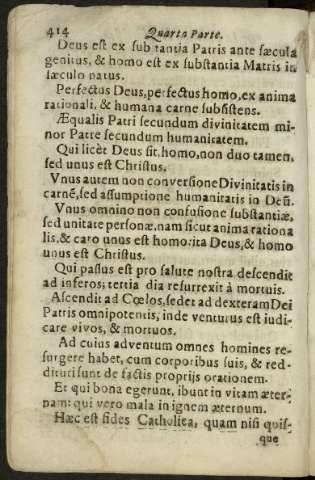 414 Quarta Parte.
Deus est ex substantia Patris ante sæcula
genitus, & homo est ex substantia Matris in
sæculo natus.
Perfectus Deus, perfectus homo, ex anima
rationali, & humana carne subsistens.
Æqualis Patri secundum divinitatem mi-
nor Patre secundum humanitatem.
Qui licèt Deus sit, homo, non duo tamen,
sed unus est Christus.
Vnus autem non conversione Divinitatis in
carnẽ, sed assumptione humanitatis in Deũ.
Vnus omnino non confusione substantiæ,
sed unitate personæ, nam sicut anima rationa
lis, & caro unus est homo: ita Deus, & homo
unus est Christus.
Qui passus est pro salute nostra descendit
ad inferos; tertia dia resurrexit à mortuis.
Ascendit ad Cœlos, sedet ad dexteram Dei
Patris omnipotentis, inde venturus est iudi-
care vivos, & mortuos.
Ad cuius adventum omnes homines re-
surgere habet, cum corporibus suis, & red-
dituri sunt de factis proprijs orationem.
Et qui bona egerunt, ibunt in vitam æter-
nam: qui vero mala in ignem æternum.
Hæc est fides Catholica, quam nisi quis-
que